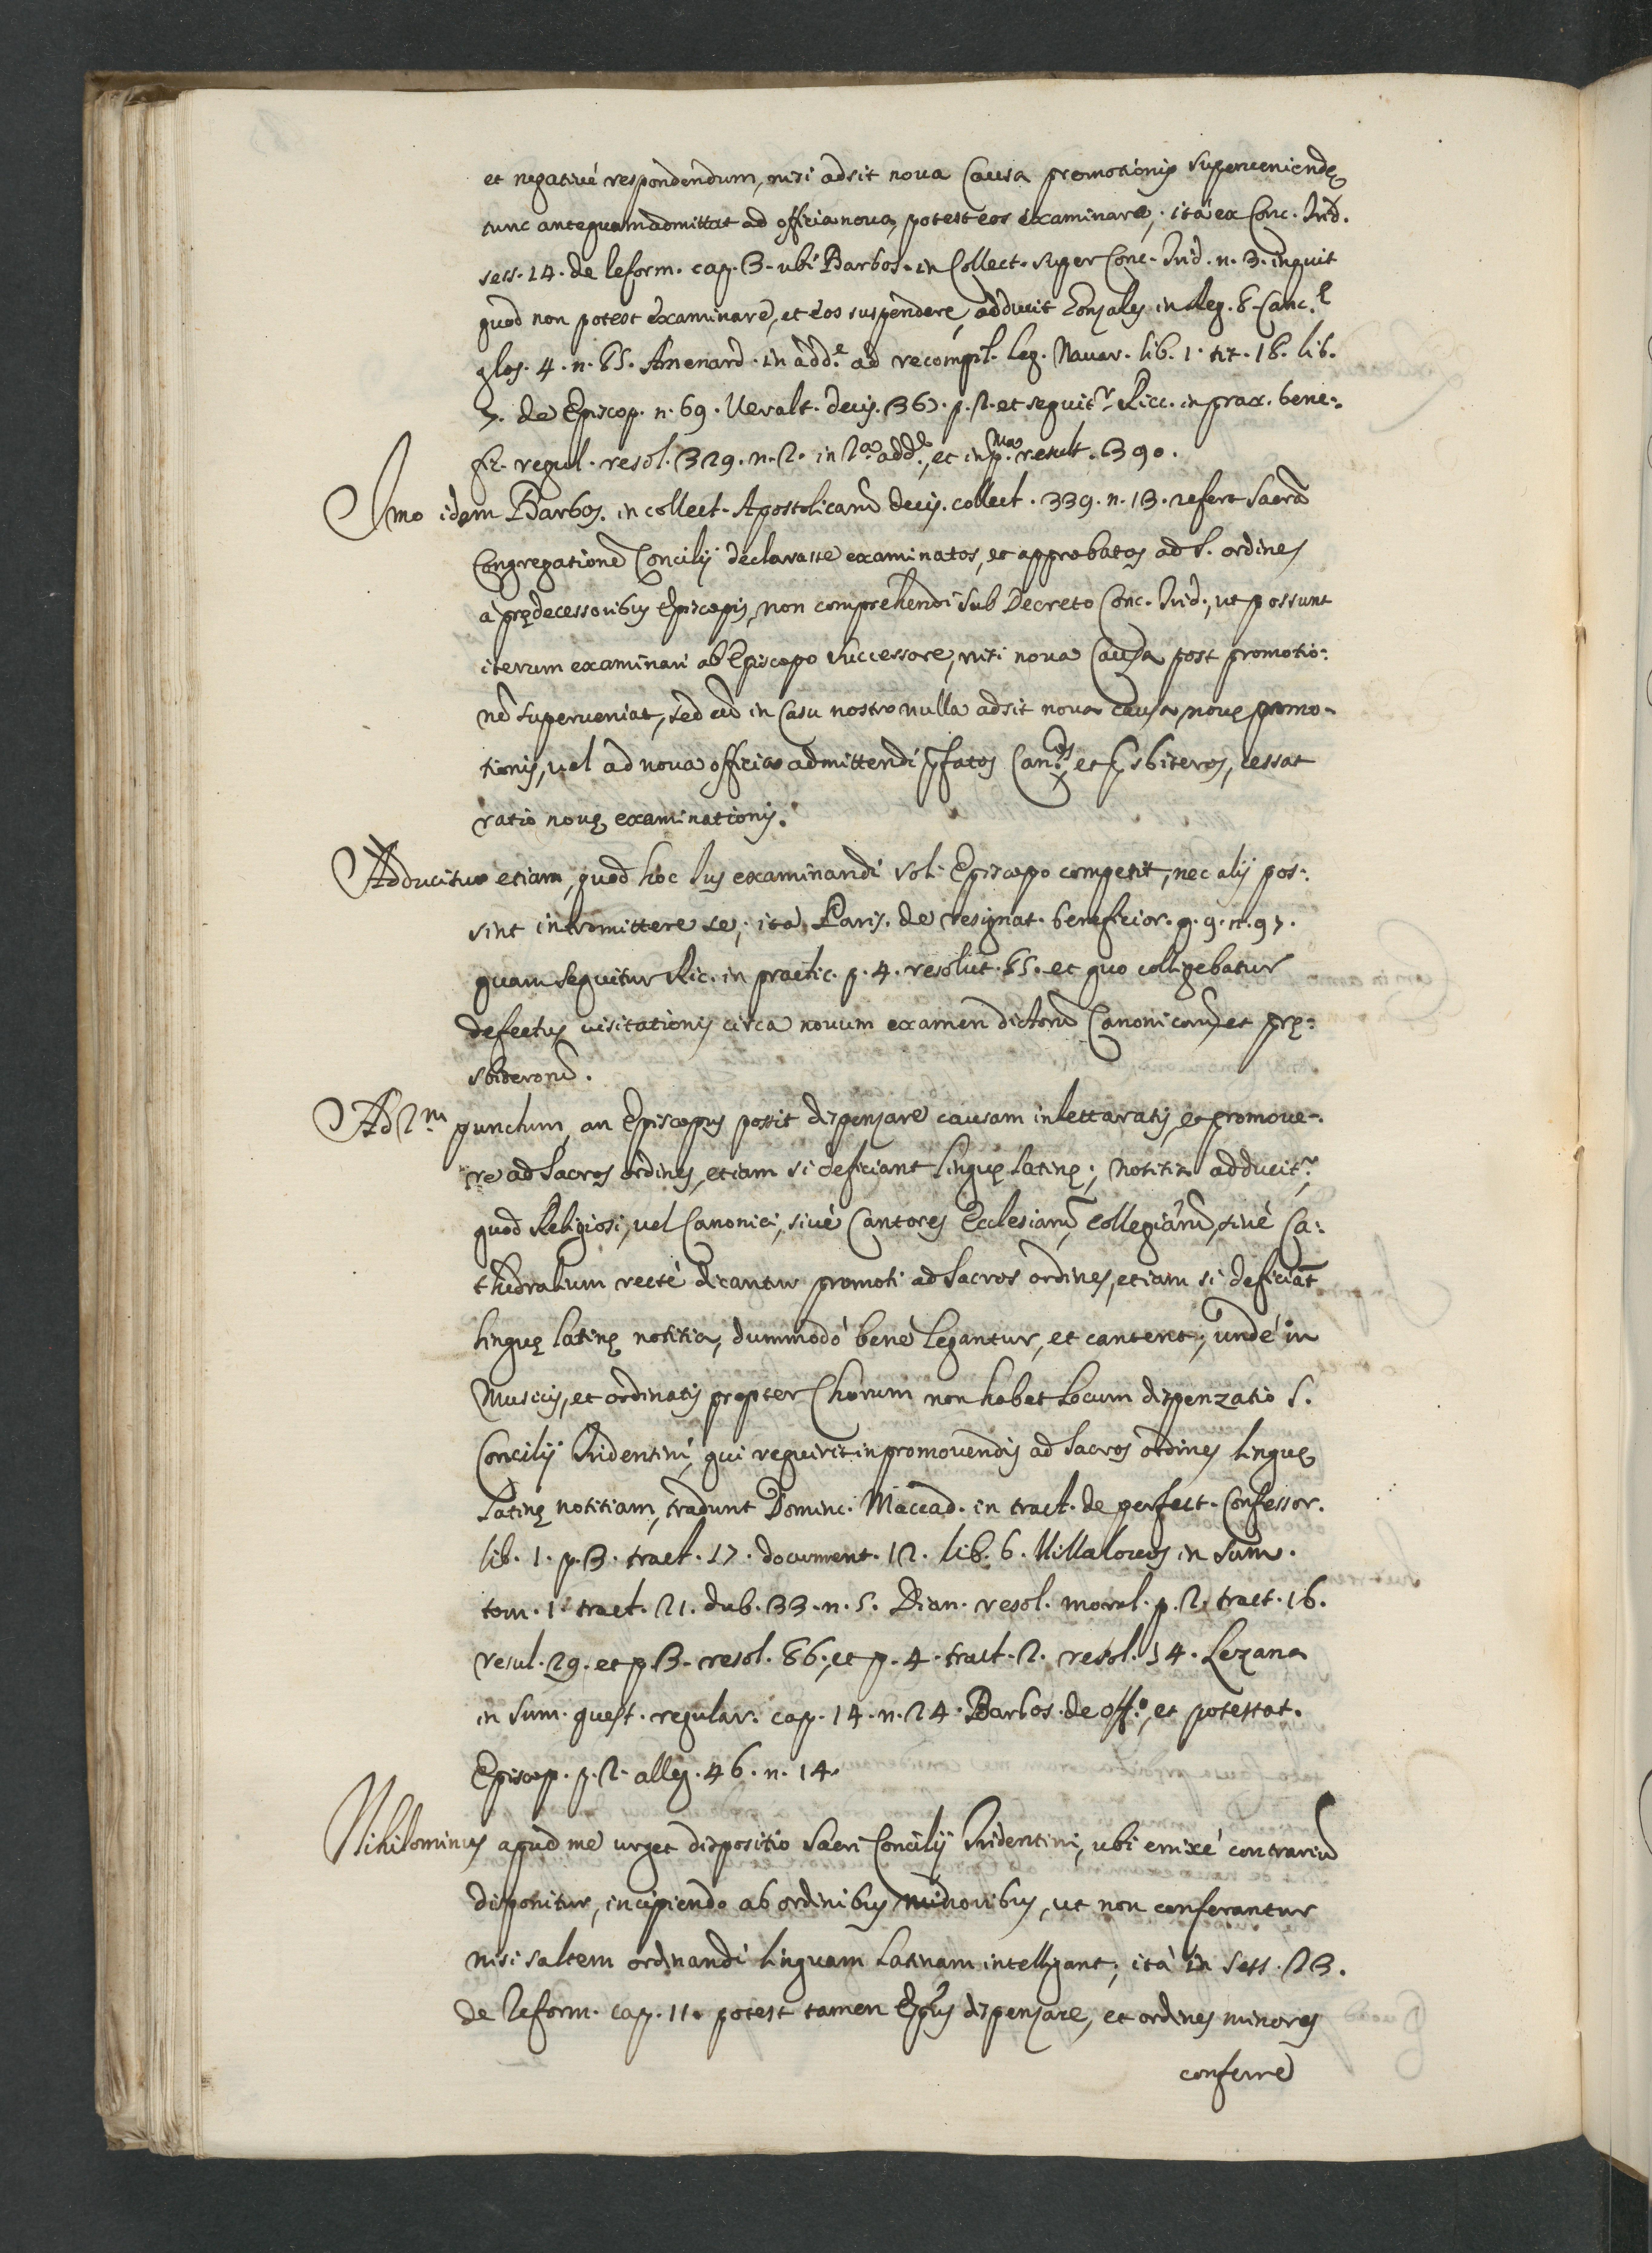 et negativé respondendum, nisi adsit nova Causa promotionis superveniendę
tunc antequam admittat ad officia nova, potest eos examinare, ità ex Conc. Trid.
sess. 14. de Reform. cap. 3. ubi Barbos. in Collect. super Conc. Trid. n. 3. inquit
quod non potest examinare, et eos suspendere, adducit Gonzales in Reg. 8. Canc.
glos. 4. n. 85. Amenard. in add.e ad recompil. leg. Navar. lib. 1. tit. 18. lib.
7. de Episcop. n. 69. Veralt. decis. 367. p. 2. et sequit.r Ricc. in prax. bene-
fic. regul. resol. 329. n. 2. in 2.a add., et in p.ma result. 390.
Imo idem Barbos. in collect. Apostolicarũ decis. collect. 339. n. 13. refert Sacrã
Congregationẽ Concilij declarasse examinatos, et approbatos ad S. ordines
à prędecessoribus Episcopis, non comprehendi sub Decreto Conc. Trid., ut possunt
iterum examinari ab Episcopo successore, nisi nova Causa post promotio:
nẽ superveniat, sed cũ in Casu nostro nulla adsit nova causa novę promo-
tionis, vel ad nova officia admittendi pfatos Can.cos, et psbiteros, cessat
ratio novę examinationis.
Adducitur etiam, quod hoc Ius examinandi soli Episcopo competit, nec alij pos:
sint intromittere se, ita Paris. de resignat. beneficior. q. 9. n. 97.
quam sequitur Ric. in practic. p. 4. resolut. 85. et quo colligebatur
defectus visitationis circa novum examen dictorũ Canonicorũ, et prę:
sbiderorũ.
Ad 2.m punctum, an Episcopus possit dispensare causam inlettaratis, et promove-
re ad Sacros ordines, etiam si deficiant linguę latinę; notitia adducit.r,
quod Religiosi, vel Canonici, sivè Cantores Ecclesiarũ, collegiarũ, sivè Ca:
thedralium recté dicantur promoti ad Sacros ordines, etiam si deficiãt
linguę latinę notitia, dummodò bene legantur, et cantent, undè in
Musicis, et ordinatis propter Chorum non habet Locum dispenzatio S.
Concilij Tridentini, qui requirit in promovendis ad Sacros ordines linguę
Latinę notitiam, tradunt Dominc. Maccad. in tract. de perfect. Confessor.
lib. 1. p. 3. tract. 17. document. 12. lib. 6. Villalobos in Sum.
tom. 1. tract. 21. dub. 33. n. 5. Dian. resol. moral. p. 2. tract. 16.
resul. 29. et p. 3. resol. 86., et p. 4. tract. 2. resol. 14. Lezana
in Sum. quest. regular. cap. 14. n. 24. Barbos. de off.o, et potestat.
Episcop. p. 2. alleg. 46. n. 14.
Nihilominus apud me urget dispositio Sacri Concilij Tridentini, ubi enixé contrariũ
disponitur, incipiendo ab ordinibus minoribus, ut non conferantur
nisi saltem ordinandi linguam Latinam intelligant, ità in sess. 23.
de Reform. cap. 11. potest tamen Epũs dispensare, et ordines minores
conferre